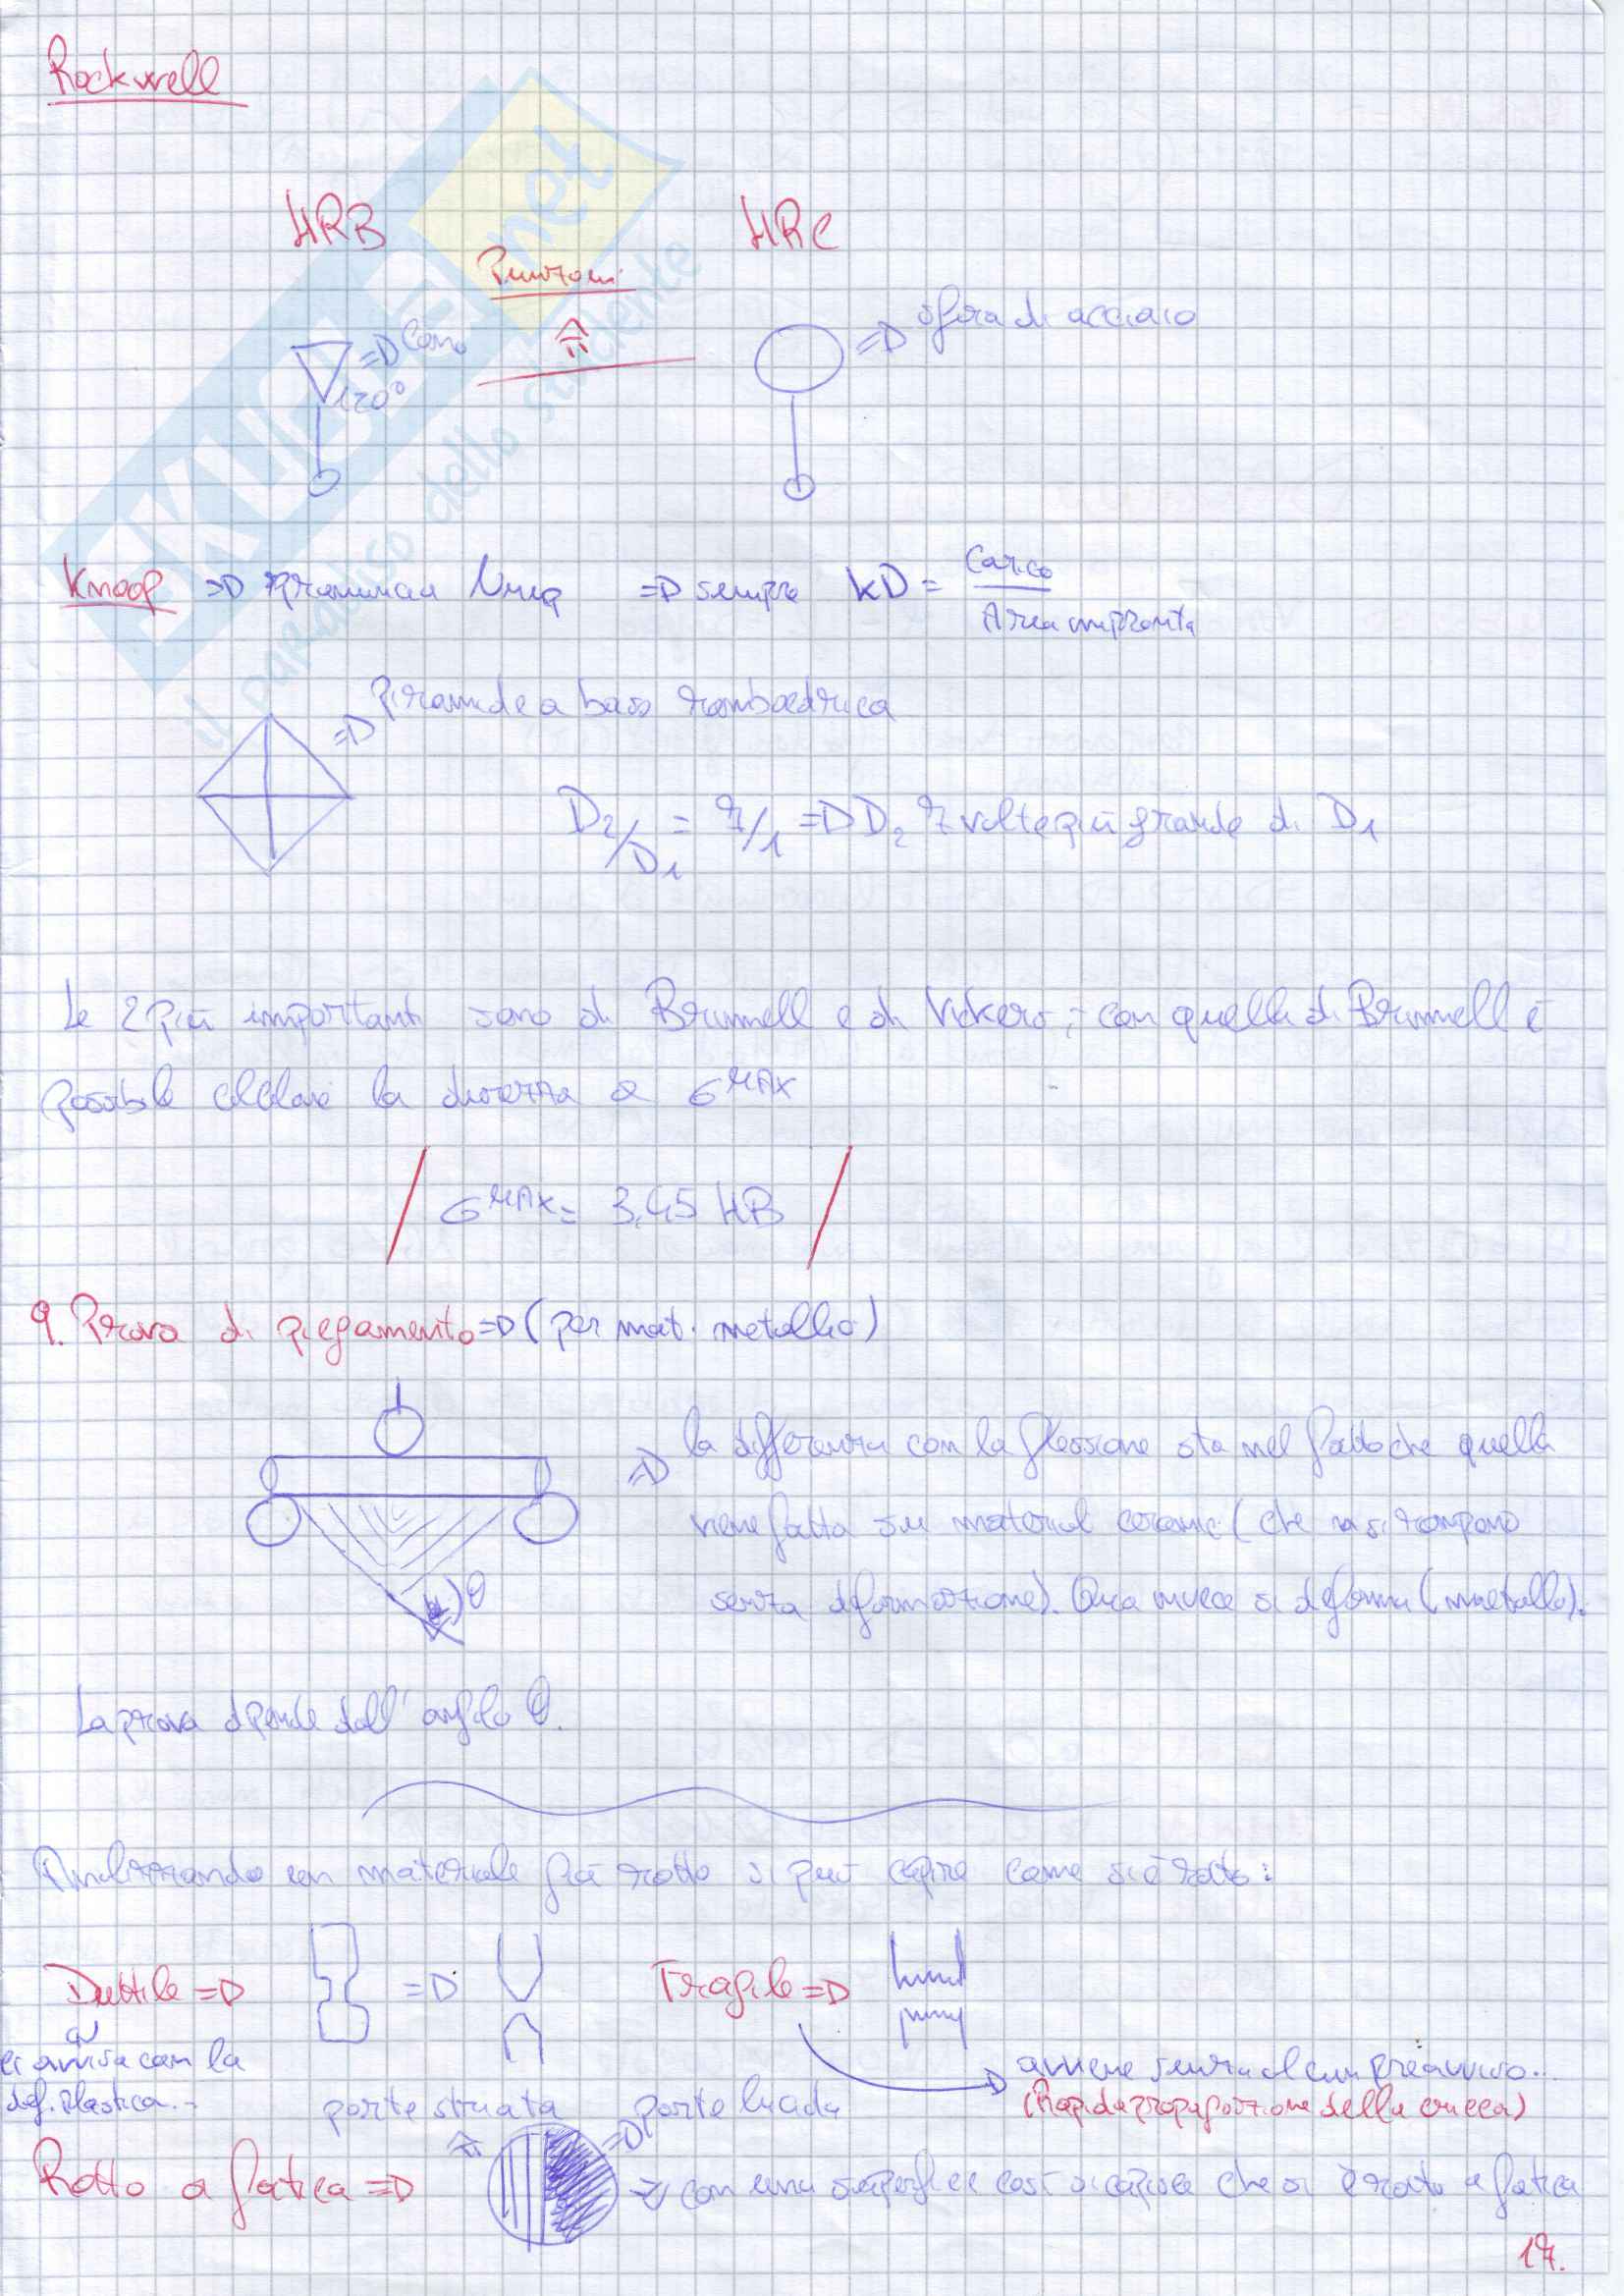 Rockwell
HRB
HRC
Punzoni
=D Cono
120°
=D sfera di acciaio
SKUOLA.net
il paradiso dello studente
Knoop => =D sempre kD = Carico / Area impronta
=D piramide a base romboedrica
D2/D1 = 7/1 =D D2 7 volte più grande di D1
Le 2 più importanti sono di Brunnell e di Vickers, con quella di Brunnell è
possibile calcolare la durezza a σMAX
σMAX = 3,45 HB
9. Prova di piegamento =D (per mat. metallici)
=D la differenza con la flessione sta nel fatto che quella
viene fatta su materiali ceramici (che si rompono
senza deformazione). Qua invece si deforma (metallo).
θ
La prova dipende dall'angolo θ.
Analizzando un materiale già rotto si può capire come si è rotto:
Duttile =D
=D
Fragile =D
ci avvisa con la
def. plastica.
avviene senza alcun preavviso..
(Rapida propagazione della cricca)
parte striata
parte lucida
Rotto a fatica =D
=D
con una superficie così si capisce che si è rotto a fatica
17.